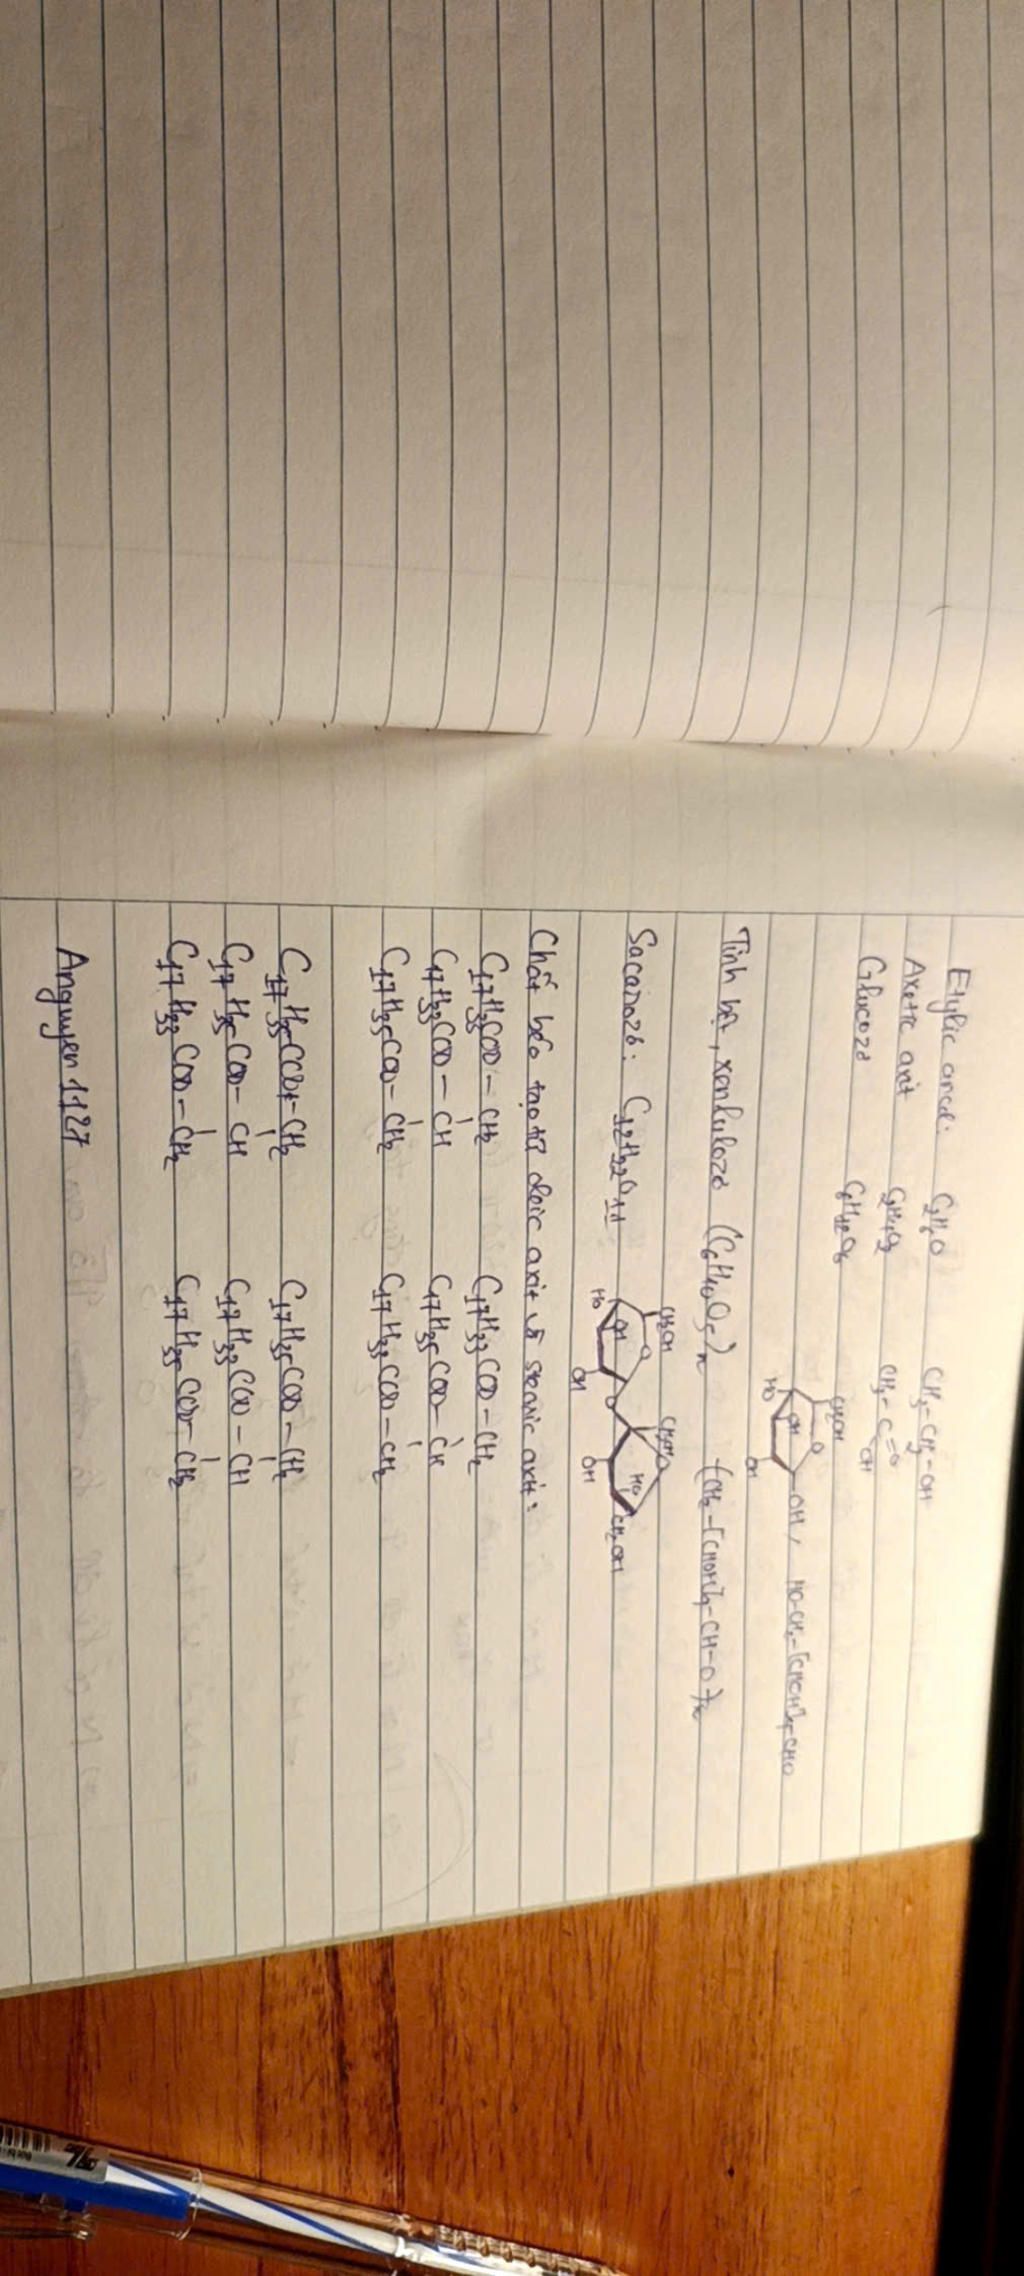 Etylic ancol: C2H6O CH3-CH2-OH
Axetic axit C2H4O2 CH3-C=O
OH
Glucozơ C6H12O6
CH2OH
O
HO OH OH, HO-CH2-[CHOH]4-CHO
OH
Tinh bột, xenlulozơ (C6H10O5)n (CH2-[CHOH]4-CH-O)n
CH2OH CH2OH
O O
Sacarozơ: C12H22O11 HO OH O HO CH2OH
OH OH
Chất béo tạo từ oleic axit và stearic axit:
C17H33COO-CH2 C17H33COO-CH2
C17H33COO-CH C17H35COO-CH
C17H35COO-CH2 C17H33COO-CH2
C17H35COO-CH2 C17H35COO-CH2
C17H35COO-CH C17H33COO-CH
C17H33COO-CH2 C17H35COO-CH2
Anguyen1127